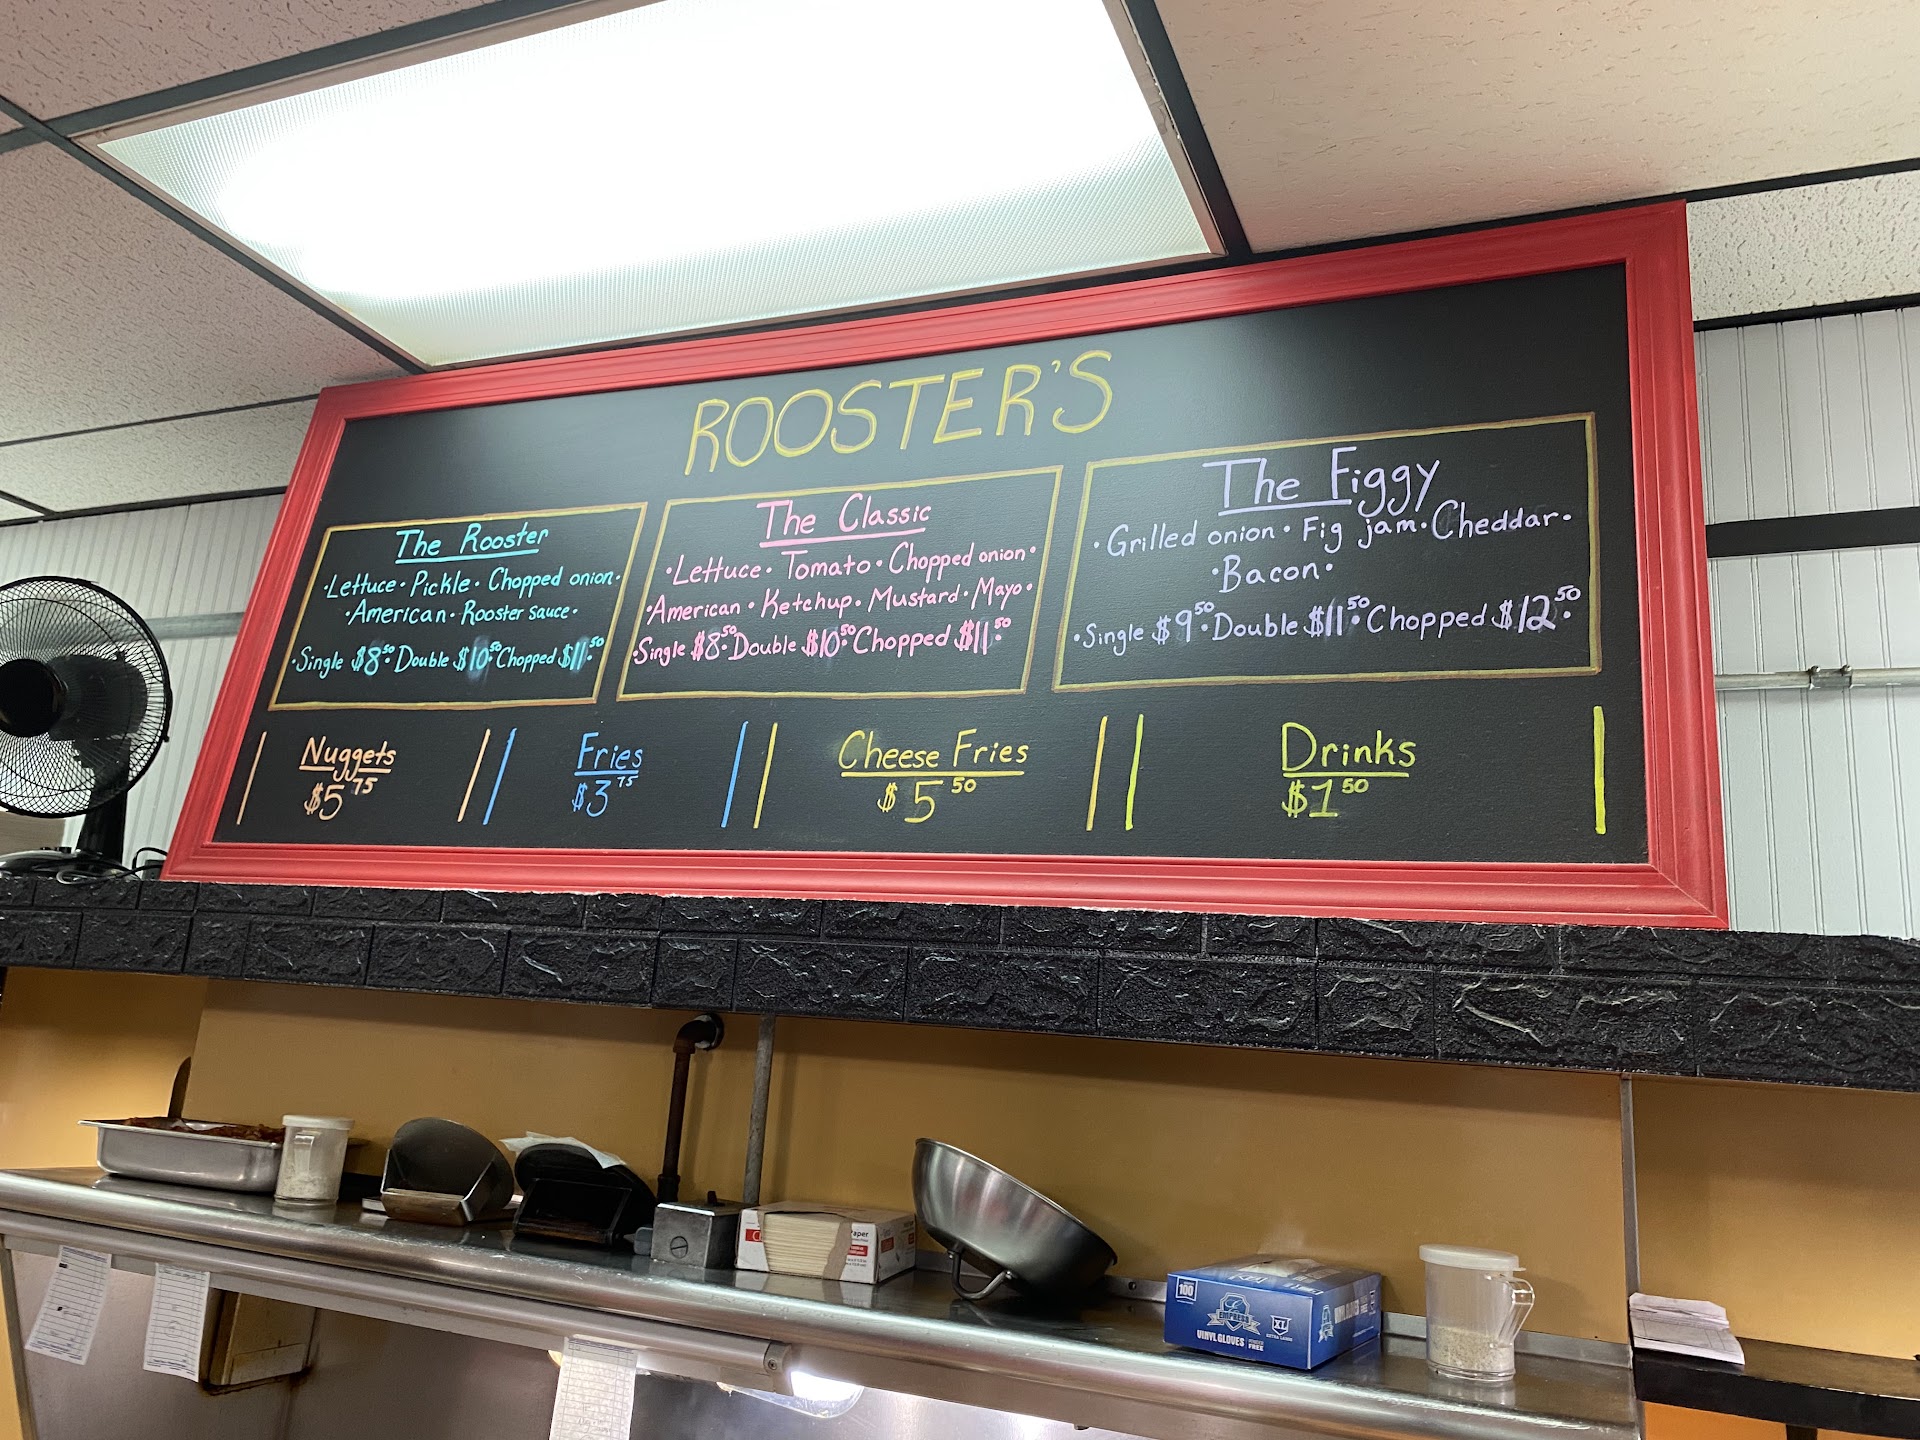 ROOSTER'S
The Rooster
·Lettuce·Pickle·Chopped onion·
·American·Rooster sauce·
·Single $8.50 Double $10.50 Chopped $11.50
The Classic
·Lettuce·Tomato·Chopped onion·
·American·Ketchup·Mustard·Mayo·
·Single $8.50 Double $10.50 Chopped $11.50
The Figgy
·Grilled onion·Fig jam·Cheddar·
·Bacon·
·Single $9.50 Double $11.50 Chopped $12.50
Nuggets
$5 75
Fries
$3 75
Cheese Fries
$5 50
Drinks
$1 50
100
XL
VINYL GLOVES
FREE